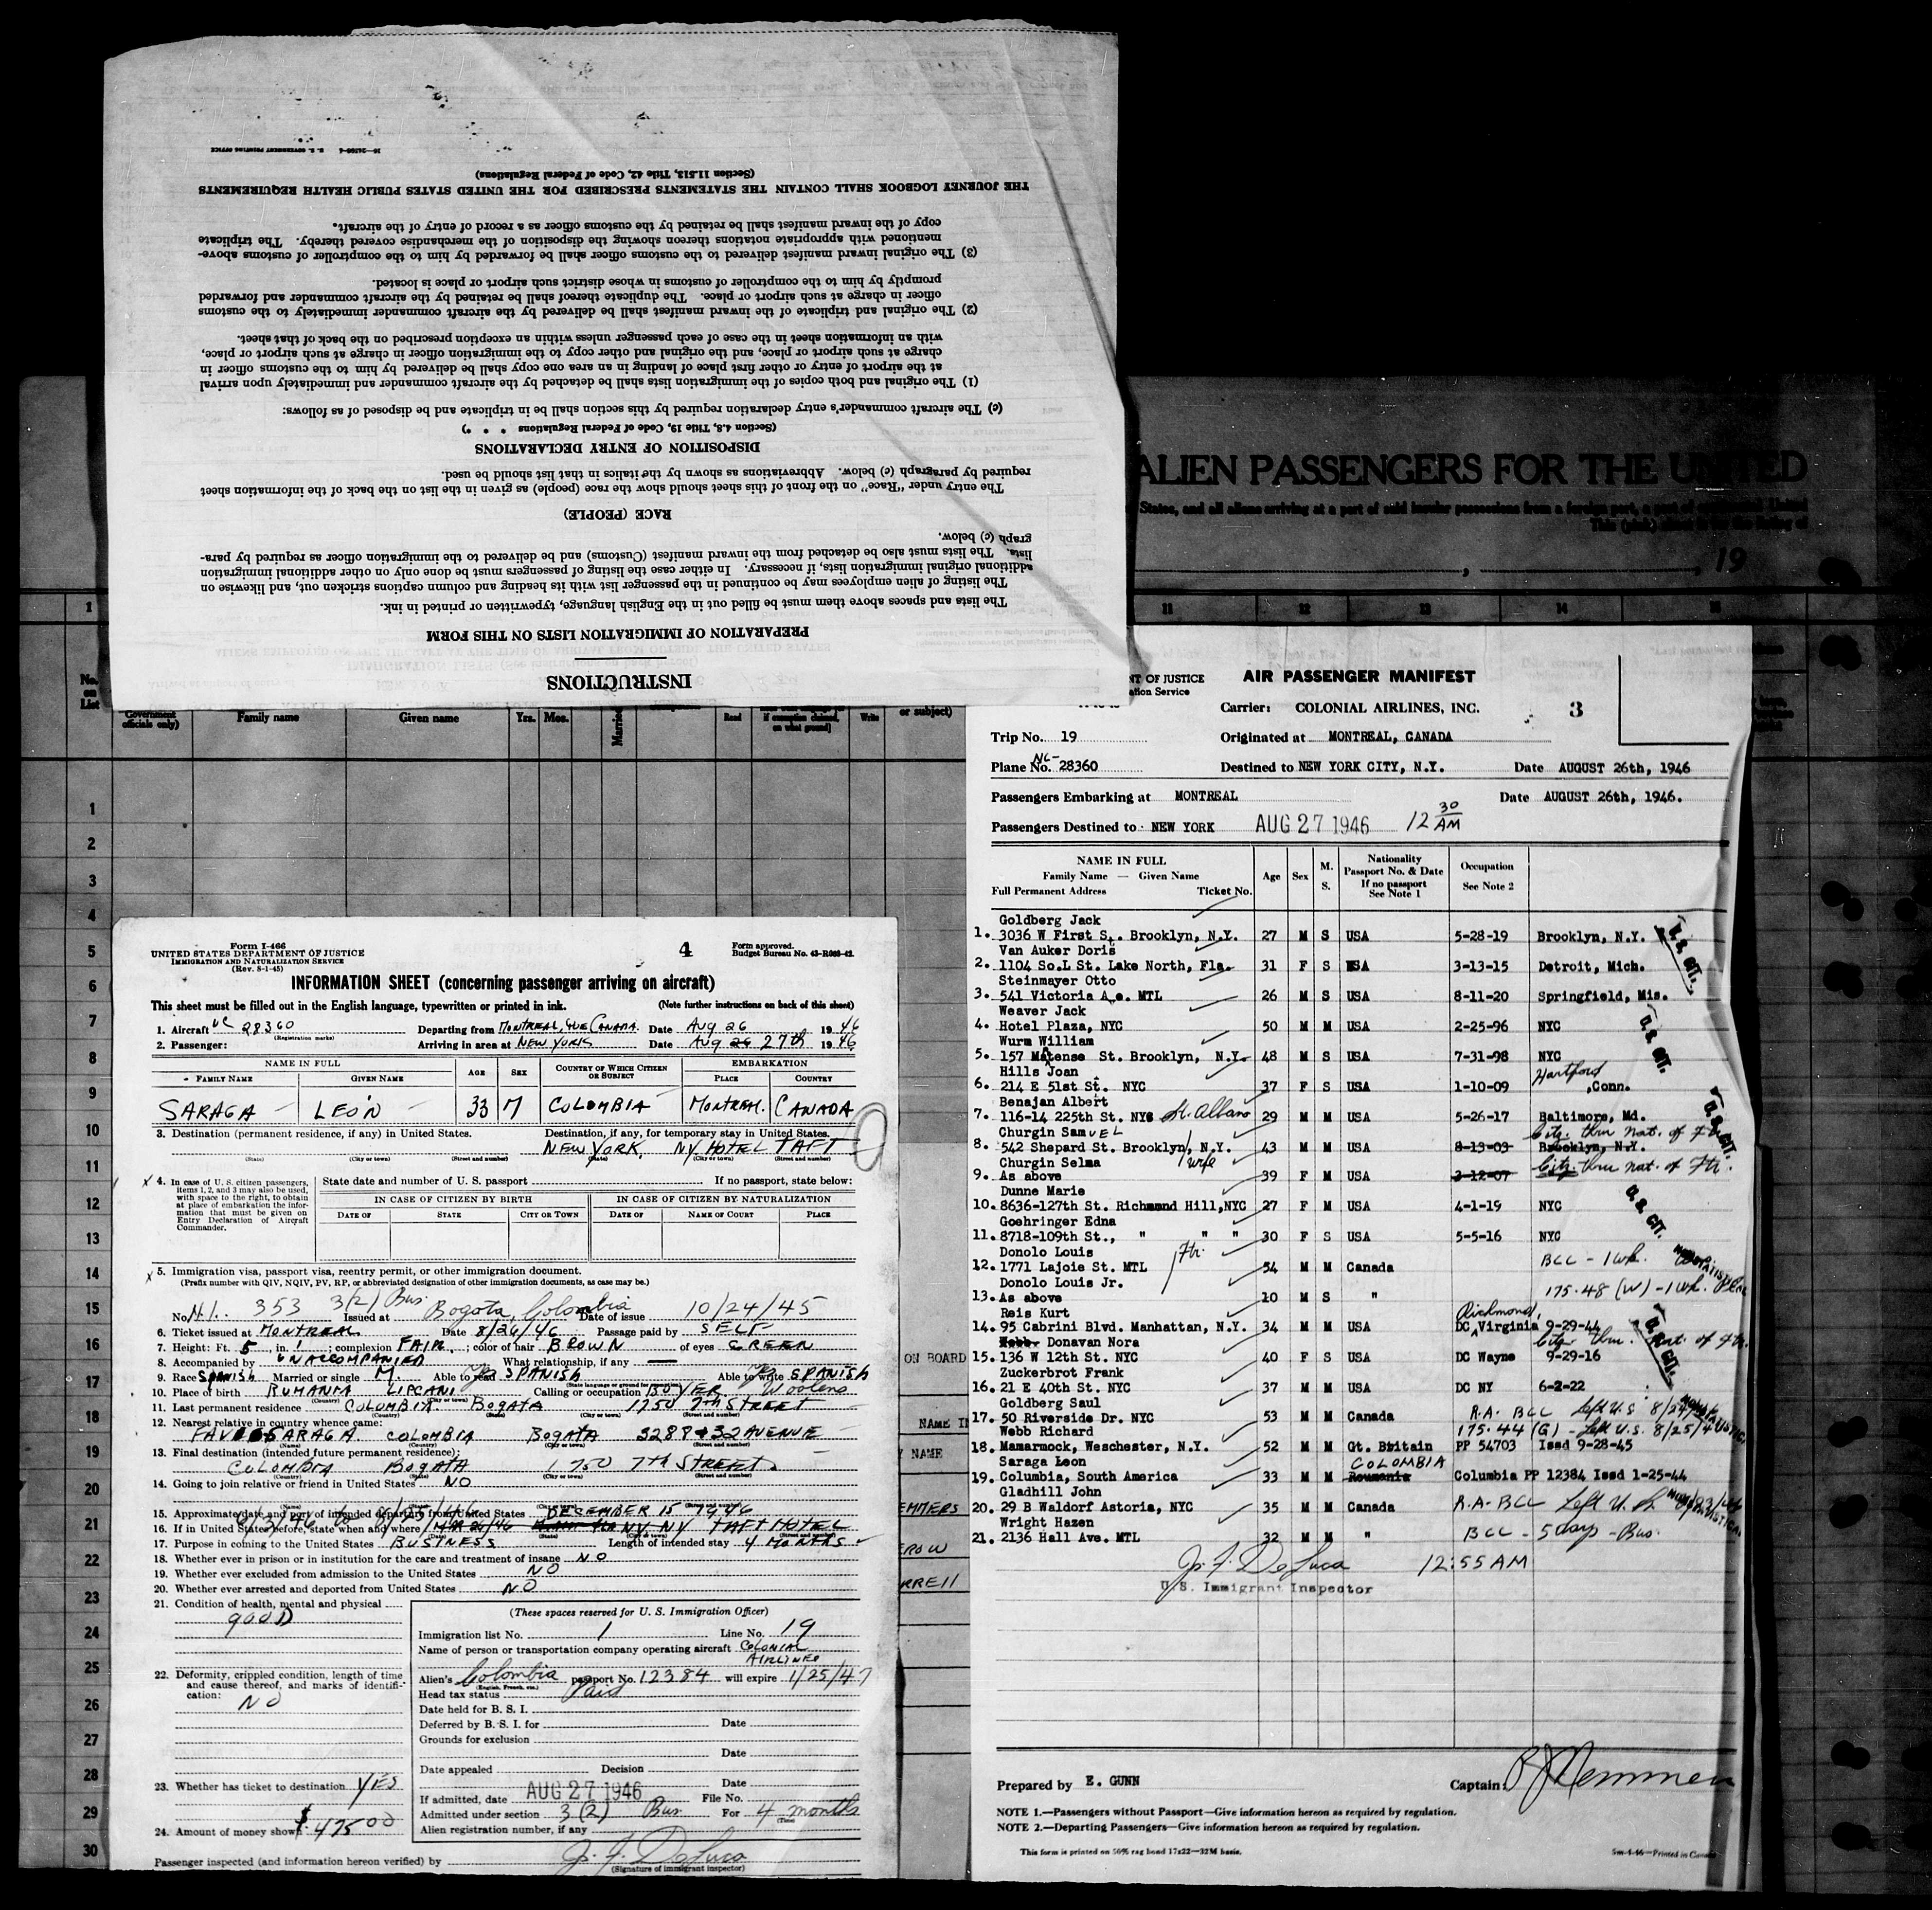 INSTRUCTIONS
PREPARATION OF IMMIGRATION LISTS ON THIS FORM
The lists and spaces above them must be filled out in the English language, typewritten or printed in ink.
The listing of alien employees may be continued in the passenger list with its heading and column captions stricken out, and likewise on
additional original immigration lists, if necessary. In either case the listing of passengers must be done only on other additional immigration
lists. The lists must also be detached from the inward manifest (Customs) and be delivered to the immigration officer as required by para-
graph (c) below.
RACE (PEOPLE)
The entry under "Race" on the front of this sheet should show the race (people) as given in the list on the back of the information sheet
required by paragraph (c) below. Abbreviations as shown by the italics in that list should be used.
DISPOSITION OF ENTRY DECLARATIONS
(Section 4.8, Title 19, Code of Federal Regulations * * *)
(c) The aircraft commander's entry declaration required by this section shall be in triplicate and be disposed of as follows:
(1) The original and both copies of the immigration lists shall be detached by the aircraft commander and immediately upon arrival
at the airport of entry or other first place of landing in an area one copy shall be delivered by him to the customs officer in
charge at such airport or place, and the original and other copy to the immigration officer in charge at such airport or place,
with an information sheet in the case of each passenger unless within an exception prescribed on the back of that sheet.
(2) The original and triplicate of the inward manifest shall be delivered by the aircraft commander immediately to the customs
officer in charge at such airport or place. The duplicate thereof shall be retained by the aircraft commander and forwarded
promptly by him to the comptroller of customs in whose district such airport or place is located.
(3) The original inward manifest delivered to the customs officer shall be forwarded by him to the comptroller of customs above-
mentioned with appropriate notations thereon showing the disposition of the merchandise covered thereby. The triplicate
copy of the inward manifest shall be retained by the customs officer as a record of entry of the aircraft.
THE JOURNEY LOGBOOK SHALL CONTAIN THE STATEMENTS PRESCRIBED FOR THE UNITED STATES PUBLIC HEALTH REQUIREMENTS
(Section 11.513, Title 42, Code of Federal Regulations)
U. S. GOVERNMENT PRINTING OFFICE
ALIEN PASSENGERS FOR THE UNITED
States, and all aliens arriving at a port of said insular possessions from a foreign port, a port of continental United
, 19
1 11 12 13 14 15
No. on List
Government officials only) Family name Given name Yrs. Mos. Married Read Write or subject)
1
2
3
4
5
6
7
8
9
10
11
12
13
14
15
16
17
18
19
20
21
22
23
24
25
26
27
28
29
30
ON BOARD
NAME IN
NAME
Form I-466
UNITED STATES DEPARTMENT OF JUSTICE
IMMIGRATION AND NATURALIZATION SERVICE
(Rev. 8-1-45)
4
Form approved.
Budget Bureau No. 43-R063-42.
INFORMATION SHEET (concerning passenger arriving on aircraft)
This sheet must be filled out in the English language, typewritten or printed in ink. (Note further instructions on back of this sheet)
1. Aircraft NC 28360 Departing from MONTREAL, QUE CANADA. Date Aug 26 1946
(Registration marks)
2. Passenger: Arriving in area at NEW YORK Date Aug 26 27th 1946
NAME IN FULL AGE SEX COUNTRY OF WHICH CITIZEN OR SUBJECT EMBARKATION
FAMILY NAME GIVEN NAME PLACE COUNTRY
SARAGA LEON 33 M COLOMBIA MONTREAL CANADA
3. Destination (permanent residence, if any) in United States. Destination, if any, for temporary stay in United States.
NEW YORK, NY HOTEL TAFT
(State) (City or town) (Street and number) (State) (City or town) (Street and number)
4. In case of U. S. citizen passengers, items 1, 2, and 3 may also be used, with space to the right, to obtain at place of embarkation the information that must be given on Entry Declaration of Aircraft Commander.
State date and number of U. S. passport If no passport, state below:
IN CASE OF CITIZEN BY BIRTH IN CASE OF CITIZEN BY NATURALIZATION
DATE OF STATE CITY OR TOWN DATE OF NAME OF COURT PLACE
5. Immigration visa, passport visa, reentry permit, or other immigration document.
(Prefix number with QIV, NQIV, PV, RP, or abbreviated designation of other immigration documents, as case may be.)
No. N.I. 353 3(2) Bus Issued at Bogota, Colombia Date of issue 10/24/45
6. Ticket issued at MONTREAL Date 8/26/46 Passage paid by SELF
7. Height: Ft. 5, in. 1; complexion FAIR; color of hair BROWN of eyes GREEN
8. Accompanied by UNACCOMPANIED What relationship, if any —
9. Race SPANISH Married or single M. Able to read Yes SPANISH Able to write Yes SPANISH
10. Place of birth RUMANIA LIPCANI Calling or occupation BUYER Woolens
11. Last permanent residence COLOMBIA BOGATA 1750 7th STREET
(Country) (City or town) (Street and number)
12. Nearest relative in country whence came:
SARAGA COLOMBIA BOGATA 32 AVENUE
(Name) (Country) (City or town) (Street and number)
13. Final destination (intended future permanent residence):
COLOMBIA BOGATA 1750 7th STREET.
(Country) (City or town) (Street and number)
14. Going to join relative or friend in United States NO
15. Approximate date and port of intended departure from United States DECEMBER 15 1946
16. If in United States before, state when and where NY, NY TAFT HOTEL
17. Purpose in coming to the United States BUSINESS Length of intended stay 4 MONTHS
18. Whether ever in prison or in institution for the care and treatment of insane NO
19. Whether ever excluded from admission to the United States NO
20. Whether ever arrested and deported from United States NO
21. Condition of health, mental and physical
gooD
22. Deformity, crippled condition, length of time and cause thereof, and marks of identification:
NO
23. Whether has ticket to destination YES
24. Amount of money shown $475 00
(These spaces reserved for U. S. Immigration Officer)
Immigration list No. 1 Line No. 19
Name of person or transportation company operating aircraft COLONIAL AIRLINES
Alien's Colombia passport No. 12384 will expire 1/25/47
(English, French, etc.)
Head tax status Paid
Date held for B. S. I.
Deferred by B. S. I. for Date
Grounds for exclusion
Date
Date appealed Decision
Date
If admitted, date AUG 27 1946 File No.
Admitted under section 3(2) Bus. For 4 months
(Time)
Alien registration number, if any
Passenger inspected (and information hereon verified) by J. F. DeLuca
(Signature of immigrant inspector)
NT OF JUSTICE
ation Service
AIR PASSENGER MANIFEST
Carrier: COLONIAL AIRLINES, INC. 3
Trip No. 19 Originated at MONTREAL, CANADA
Plane No. NC- 28360 Destined to NEW YORK CITY, N.Y. Date AUGUST 26th, 1946
Passengers Embarking at MONTREAL Date AUGUST 26th, 1946.
Passengers Destined to NEW YORK AUG 27 1946 12 30 AM
NAME IN FULL
Family Name — Given Name
Full Permanent Address Ticket No.
Age Sex M. S. Nationality Passport No. & Date If no passport See Note 1 Occupation See Note 2
Goldberg Jack
1. 3036 W First S. Brooklyn, N.Y. 27 M S USA 5-28-19 Brooklyn, N.Y.
Van Auker Doris
2. 1104 So.L St. Lake North, Fla. 31 F S USA 3-13-15 Detroit, Mich.
Steinmayer Otto
3. 541 Victoria A e. MTL 26 M S USA 8-11-20 Springfield, Mis.
Weaver Jack
4. Hotel Plaza, NYC 50 M M USA 2-25-96 NYC
Wurm William
5. 157 Matense St. Brooklyn, N.Y. 48 M S USA 7-31-98 NYC
Hills Joan
6. 214 E 51st St. NYC 37 F S USA 1-10-09 Hartford, Conn.
Benajan Albert
7. 116-14 225th St. NYC St. Albans 29 M M USA 5-26-17 Baltimore, Md.
Churgin Samuel
8. 542 Shepard St. Brooklyn, N.Y. 43 M M USA 8-13-03 Brooklyn, N.Y. Citz. thru nat. of
Churgin Selma wife
9. As above 39 F M USA 3-12-07 Citz. thru nat. of Fthr.
Dunne Marie
10. 8636-127th St. Richmond Hill, NYC 27 F M USA 4-1-19 NYC
Goehringer Edna
11. 8718-109th St., " " " 30 F S USA 5-5-16 NYC
Donolo Louis
12. 1771 Lajoie St. MTL 54 M M Canada BCC - 1 wk.
Donolo Louis Jr.
13. As above 10 M S " 175.48 (W) - 1 wk.
Reis Kurt
14. 95 Cabrini Blvd. Manhattan, N.Y. 34 M M USA DC Richmond, Virginia 9-29-44
Webb Donavan Nora
15. 136 W 12th St. NYC 40 F S USA DC Wayne 9-29-16
Zuckerbrot Frank
16. 21 E 40th St. NYC 37 M M USA DC NY 6-2-22
Goldberg Saul
17. 50 Riverside Dr. NYC 53 M M Canada R.A. BCC Left U.S
Webb Richard 175.44 (G) - Left U.S. 8/25/4
18. Mamarmock, Weschester, N.Y. 52 M M Gt. Britain PP 54703 Issd 9-28-45
Saraga Leon COLOMBIA
19. Columbia, South America 33 M M Roumania Columbia PP 12384 Issd 1-25-44
Gladhill John
20. 29 B Waldorf Astoria, NYC 35 M M Canada R.A-BCC Left U.S.
Wright Hazen
21. 2136 Hall Ave. MTL 32 M M " BCC - 5 days - Bus.
U.S. CIT.
U.S. CIT.
U.S. CIT.
U.S. CIT.
U.S. CIT.
J. F. DeLuca 12:55 AM
U.S. Immigrant Inspector
Prepared by E. GUNN Captain:
NOTE 1.—Passengers without Passport—Give information hereon as required by regulation.
NOTE 2.—Departing Passengers—Give information hereon as required by regulation.
This form is printed on 50% rag bond 17x22—32M basis. 5m-4-46—Printed in Canada